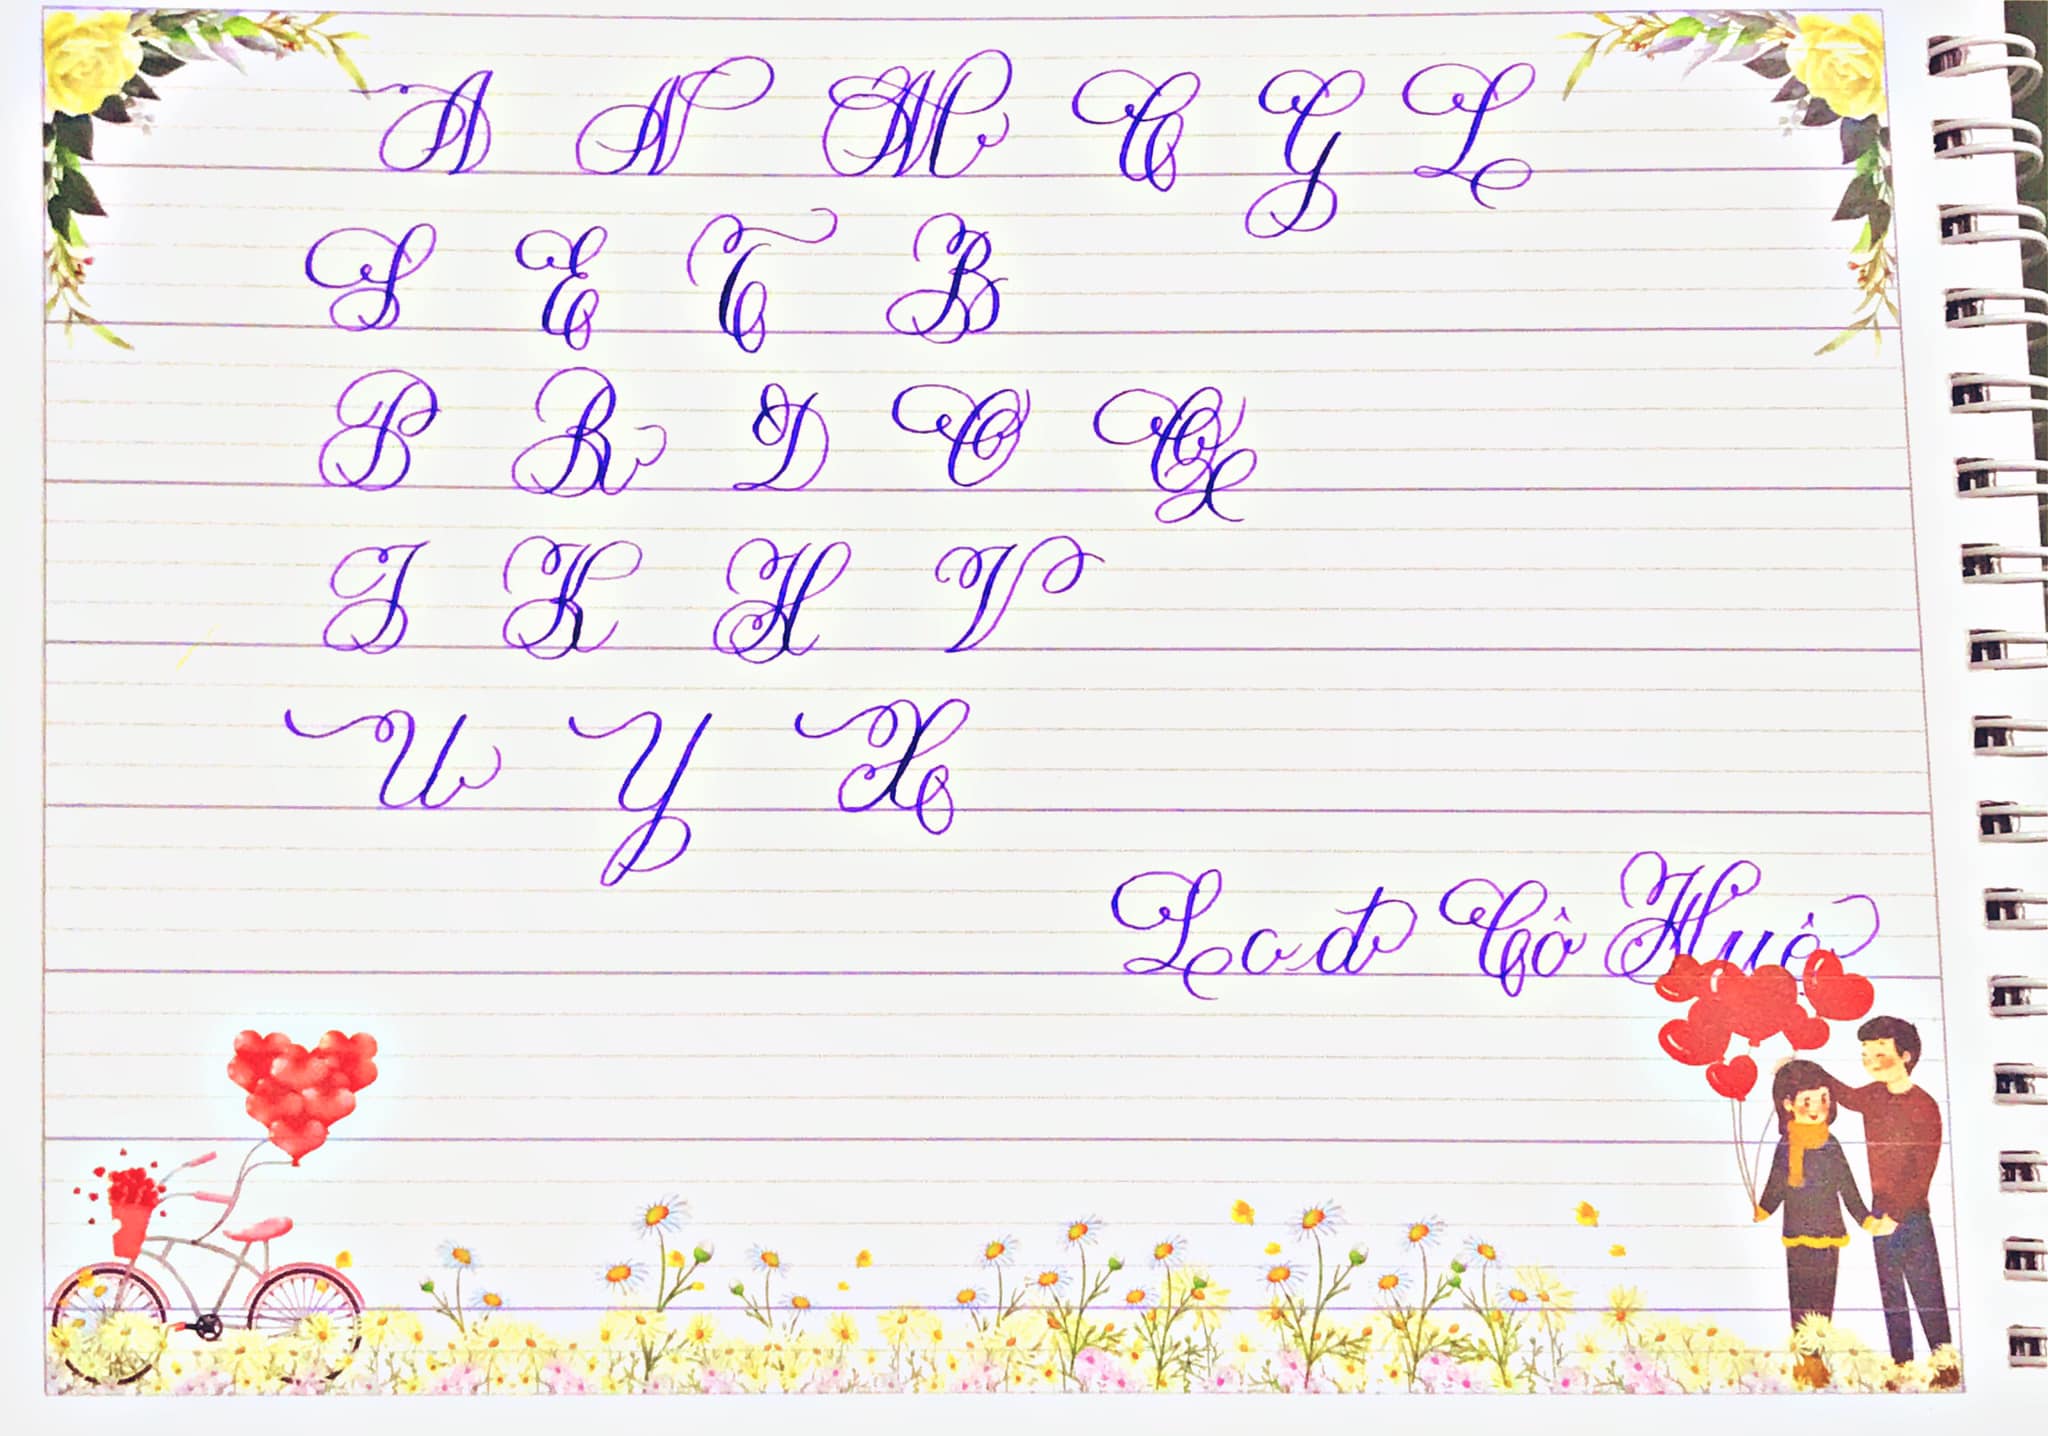 A N M C G L
S E T B
P R D O Q
I K H V
U Y X
Lcđ Cô Huê